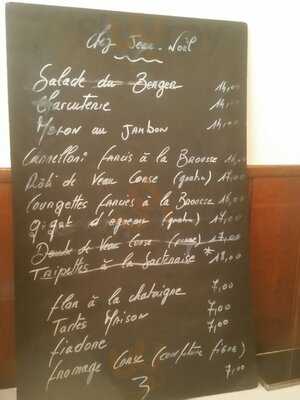 Chez Jean-Noël
Salade du Berger 14,00
Charcuterie 14,00
Melon au Jambon 14,00
Cannelloni farcis à la Brousse 16,00
Rôti de Veau Corse (gratin) 17,00
Courgettes farcies à la Brousse 16,00
Gigot d'agneau (gratin) 17,00
Daube de Veau Corse 17,00
Tripettes à la Sartenaise * 18,00
flan à la chataigne 7,00
Tartes Maison 7,00
fiadone 7,00
fromage Corse (confiture figue) 7,00